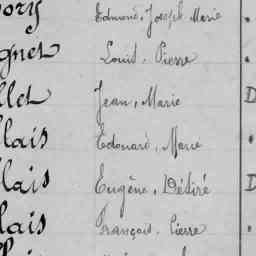 ory Edmond, Joseph Marie
gnet Louis, Pierre
llet Jean, Marie D
lais Edouard, Marie
lais Eugène, Désiré D
lais François, Pierre